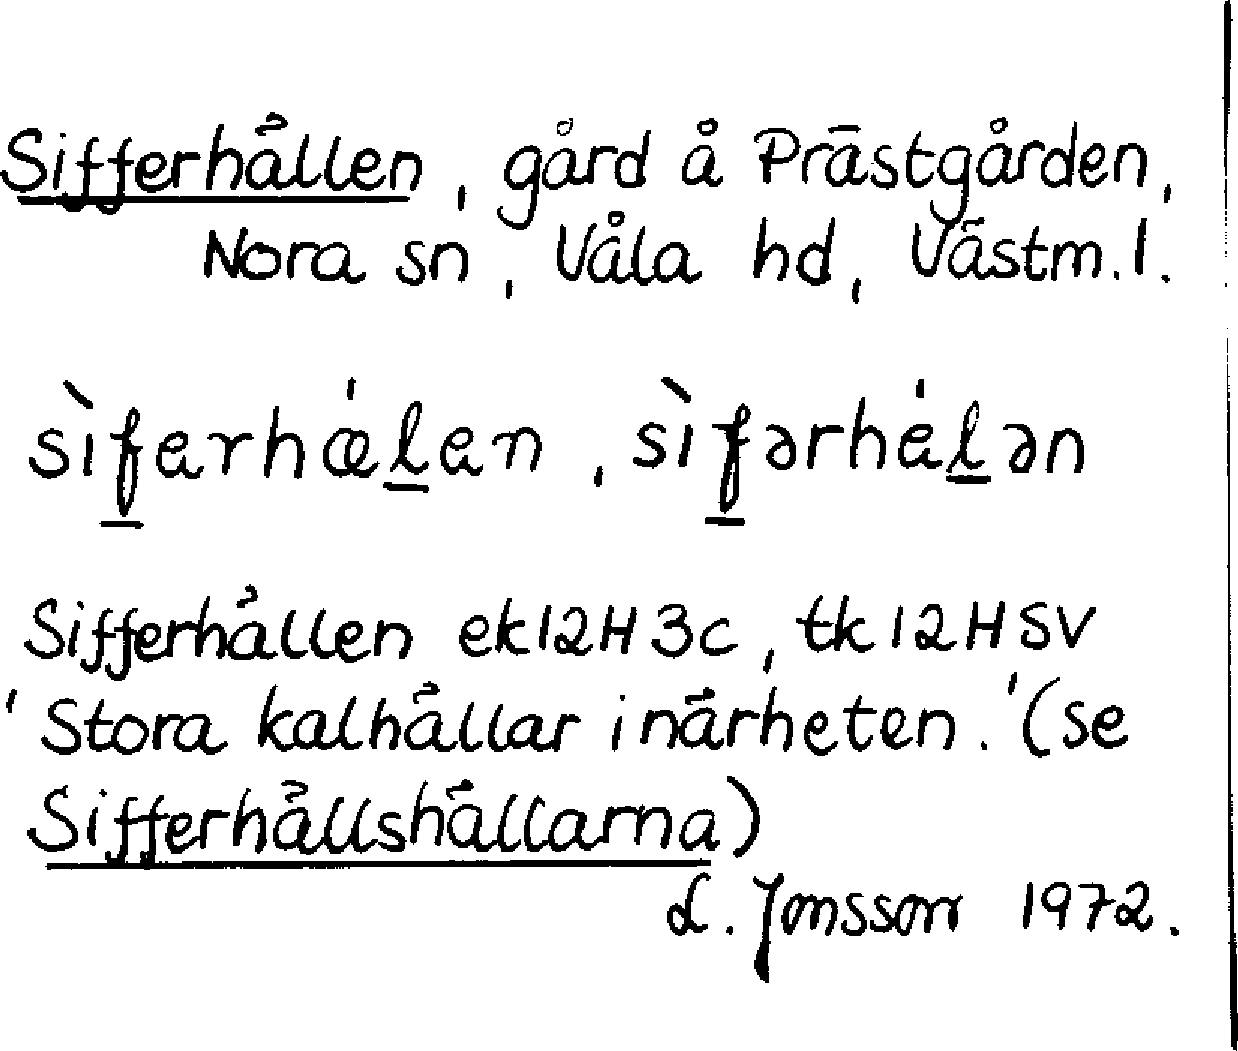 Sifferhällen, gård å Prästgården,
Nora sn, Våla hd, Västm.l.
sìf̲erhǽl̲en, sìf̲ərhél̲ən
Sifferhällen ek12H3c, tk12HSV
'Stora kalhällar i närheten.' (se
Sifferhällshällarna)
L. Jonsson 1972.